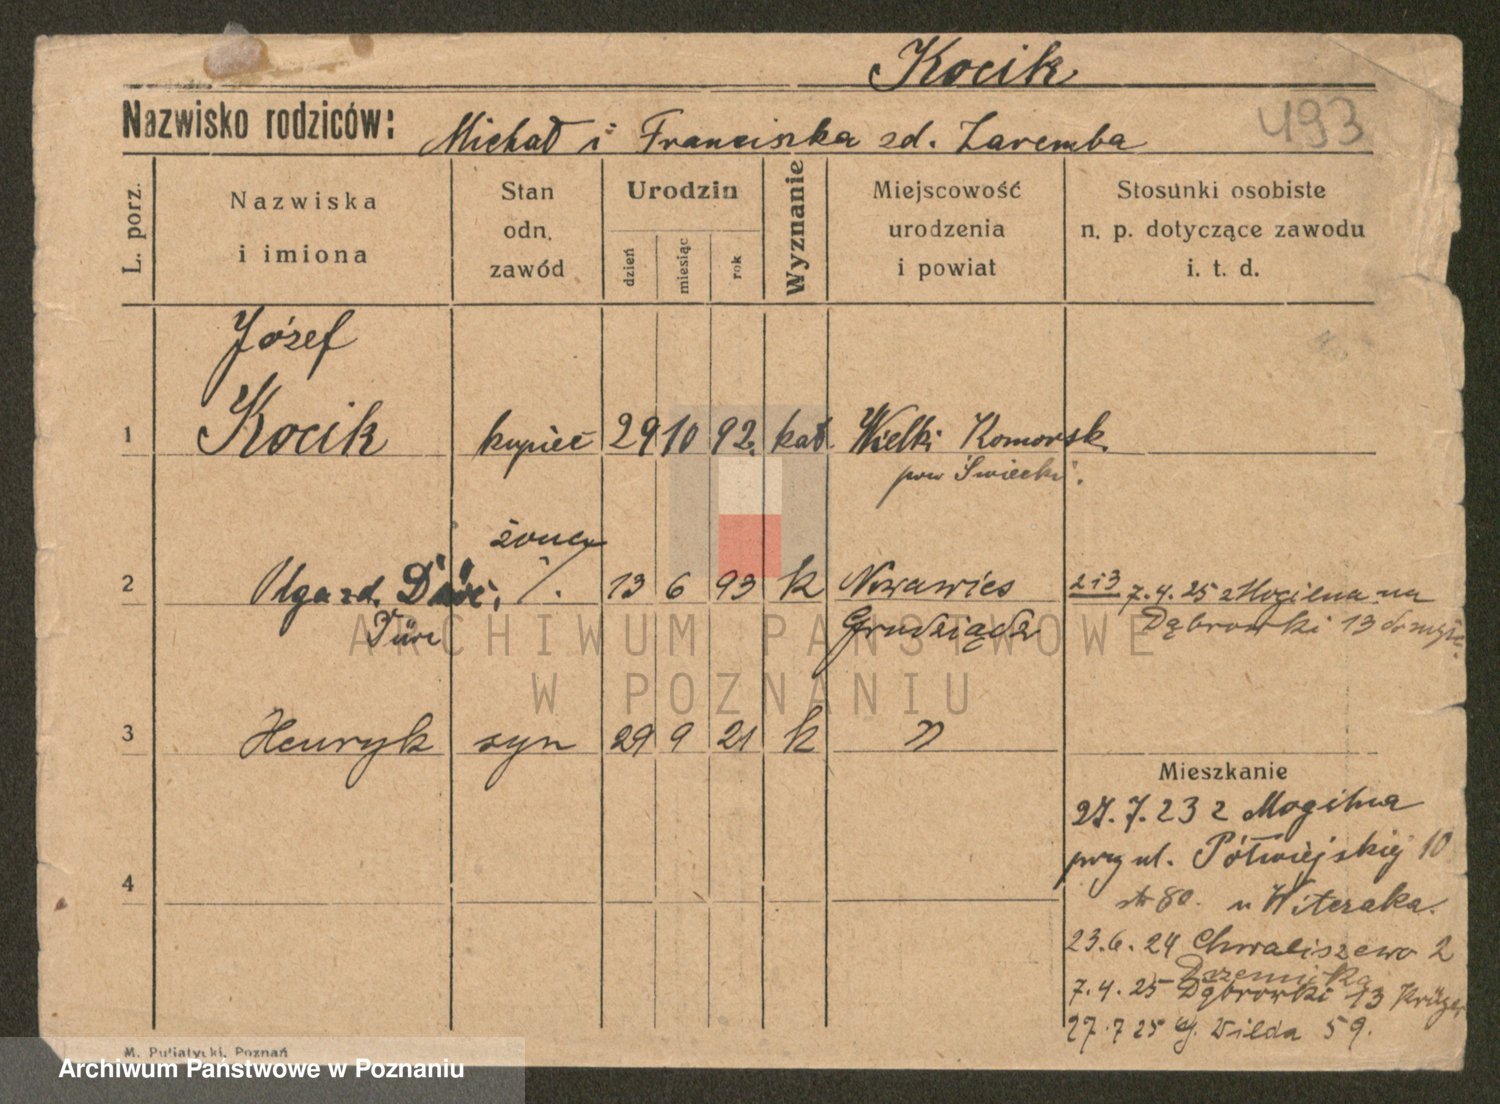 Kocik
Nazwisko rodziców: Michał i Franciszka zd. Zaremba
493
L. porz.
Nazwiska i imiona
Stan odn. zawód
Urodzin
dzień
miesiąc
rok
Wyznanie
Miejscowość urodzenia i powiat
Stosunki osobiste n. p. dotyczące zawodu i. t. d.
Józef
1 Kocik kupiec 29 10 92. kat. Wielki Komorsk
pow Świecki.
żona
2 Olga zd. 13 6 93 k Nowawieś 2 i 3 7.4.25 z Mogilna na
Dürr Grudziądz Dąbrowski 13
3 Henryk syn 29 9 21 k "
Mieszkanie
27.7.23 z Mogilna
przy ul. Półwiejskiej 10
4
str 80. u Witczaka.
23.6.24 Chwaliszewo 2
7.4.25 Dąbrowski 13 Krüger
27.7.25 G. Wilda 59.
M. Putiatycki, Poznań
ARCHIWUM PAŃSTWOWE
W POZNANIU
Archiwum Państwowe w Poznaniu